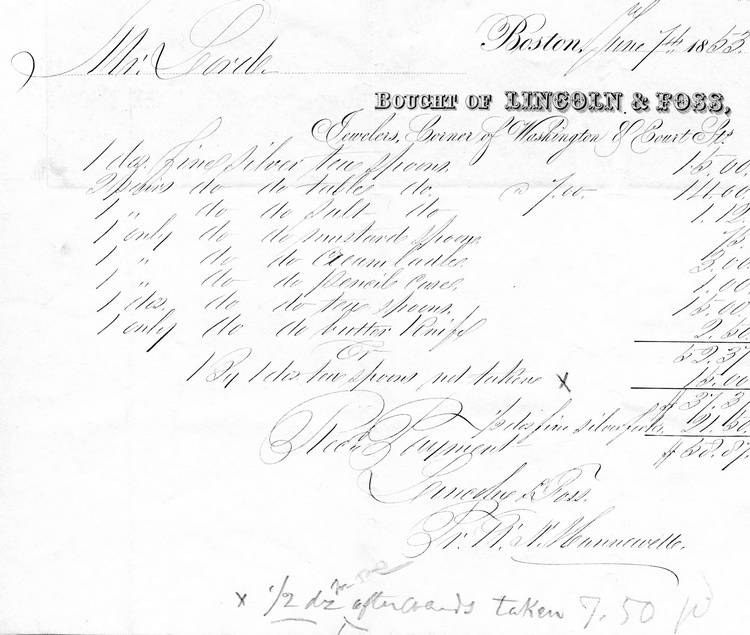 Boston, June 7th 1853.
Mr. Lord.
BOUGHT OF LINCOLN & FOSS,
Jewelers, Corner of Washington & Court Sts.
1 doz. fine silver tea spoons. 15.00
2 pairs do do table do. a 7.00. 14.00
1 " do do salt do 1.12
1 only do do mustard spoon. 75
1 " do do cream ladle. 3.00
1 " do do pencil case. 1.00
1 doz. do do tea spoons. 15.00
1 only do do butter knife 2.50
Cr 52.37
By 1 doz tea spoons not taken x 15.00
$ 37.37
1/2 doz fine silver forks 21.50
$ 58.87
Rec'd Payment
Lincoln & Foss.
Pr. N. Hunnewell.
x 1/2 dz afterwards taken 7.50